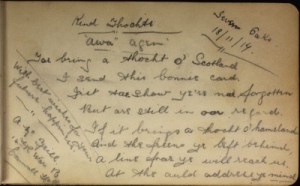 Kind Thochts
"Awa" agin"
Seven Oaks
18/11/19
Tae bring a thocht o' Scotland
I send this bonnie card
Just tae show ye're no forgotten
But are still in oor regard.
If it brings a thocht o' hameland
And the freens ye left behind,
A line frae ye will reach us
At the auld address ye mind
With best wishes for
future happiness from